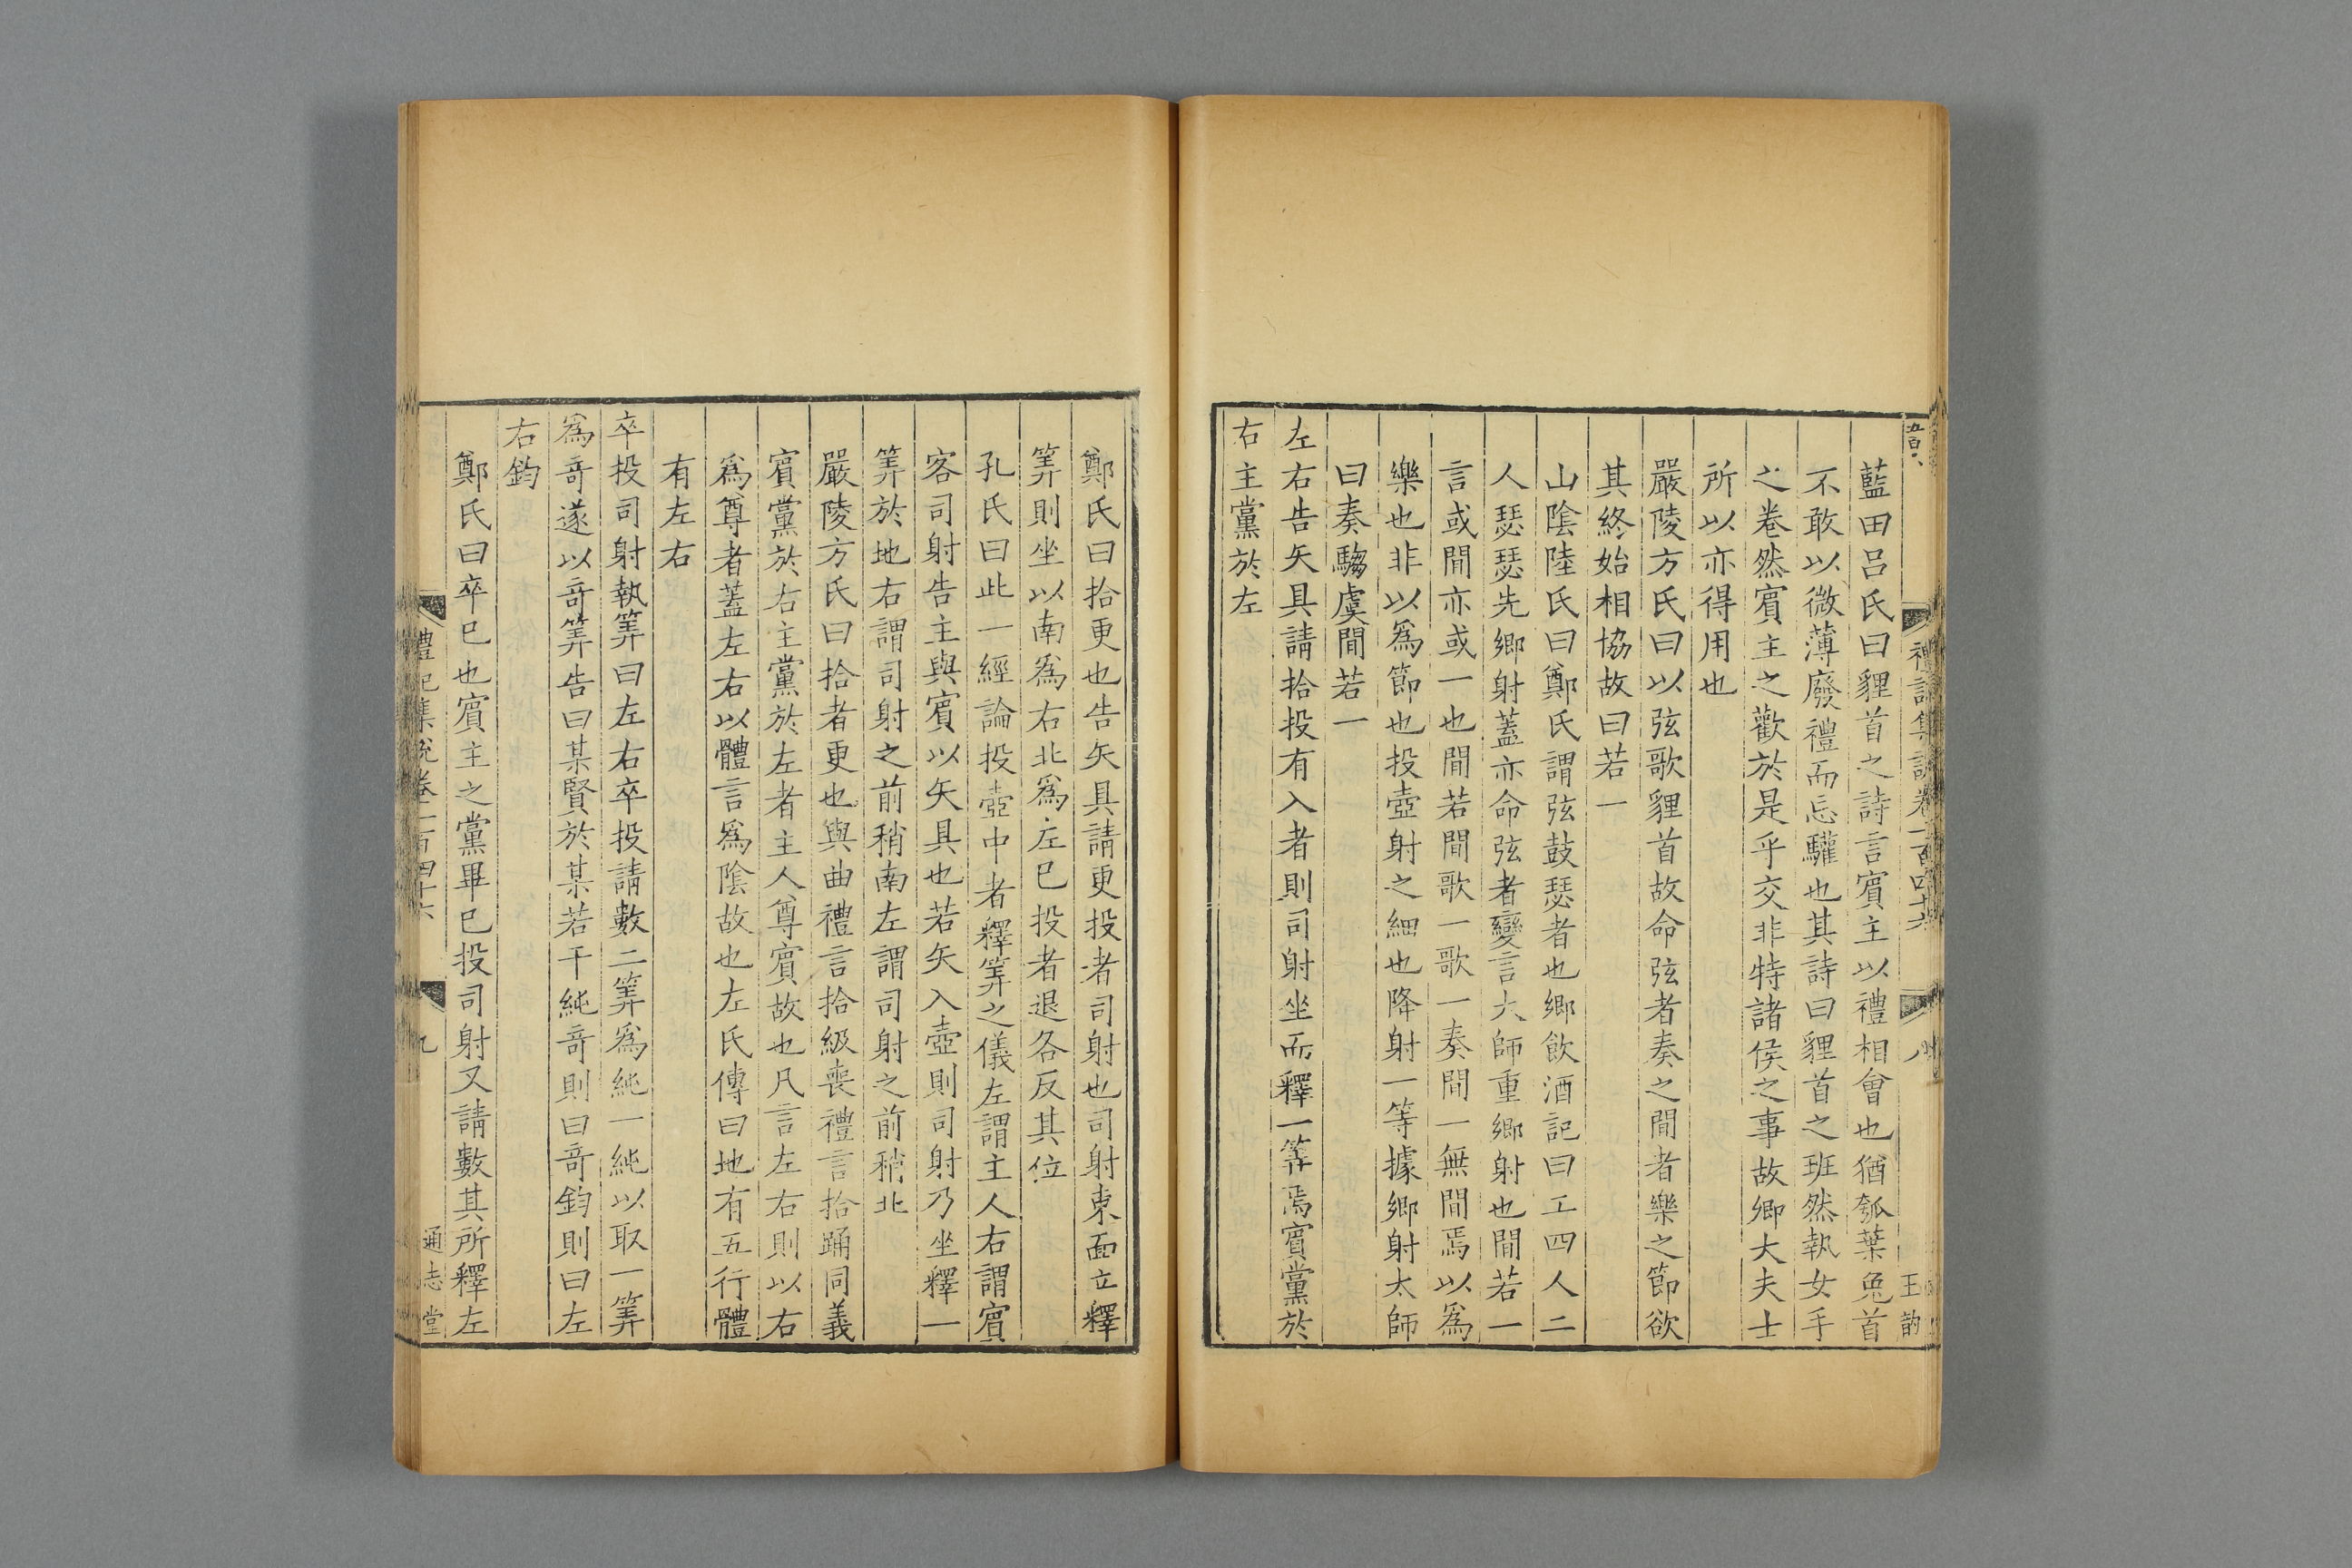 禮記集說卷一百四十六
八
王的
藍田呂氏曰貍首之詩言賓主以禮相會也猶瓠葉兔首
不敢以微薄廢禮而忘驩也其詩曰貍首之班然執女手
之卷然賓主之歡於是乎交非特諸侯之事故卿大夫士
所以亦得用也
嚴陵方氏曰以弦歌貍首故命弦者奏之間者樂之節欲
其終始相協故曰若一
山陰陸氏曰鄭氏謂弦鼓瑟者也鄉飲酒記曰工四人二
人瑟瑟先鄉射蓋亦命弦者變言大師重鄉射也間若一
言或間亦或一也間若間歌一歌一奏間一無間焉以爲
樂也非以爲節也投壺射之細也降射一等據鄉射太師
曰奏騶虞間若一
左右告矢具請拾投有入者則司射坐而釋一筭焉賓黨於
右主黨於左
鄭氏曰拾更也告矢具請更投者司射也司射東面立釋
筭則坐以南爲右北爲左已投者退各反其位
孔氏曰此一經論投壺中者釋筭之儀左謂主人右謂賓
客司射告主與賓以矢具也若矢入壺則司射乃坐釋一
筭於地右謂司射之前稍南左謂司射之前稍北
嚴陵方氏曰拾者更也與曲禮言拾級喪禮言拾踊同義
賓黨於右主黨於左者主人尊賓故也凡言左右則以右
爲尊者蓋左右以體言爲陰故也左氏傳曰地有五行體
有左右
卒投司射執筭曰左右卒投請數二筭爲純一純以取一筭
爲奇遂以奇筭告曰某賢於某若干純奇則曰奇鈞則曰左
右鈞
鄭氏曰卒已也賓主之黨畢已投司射又請數其所釋左
禮記集說卷一百四十六
九
通志堂